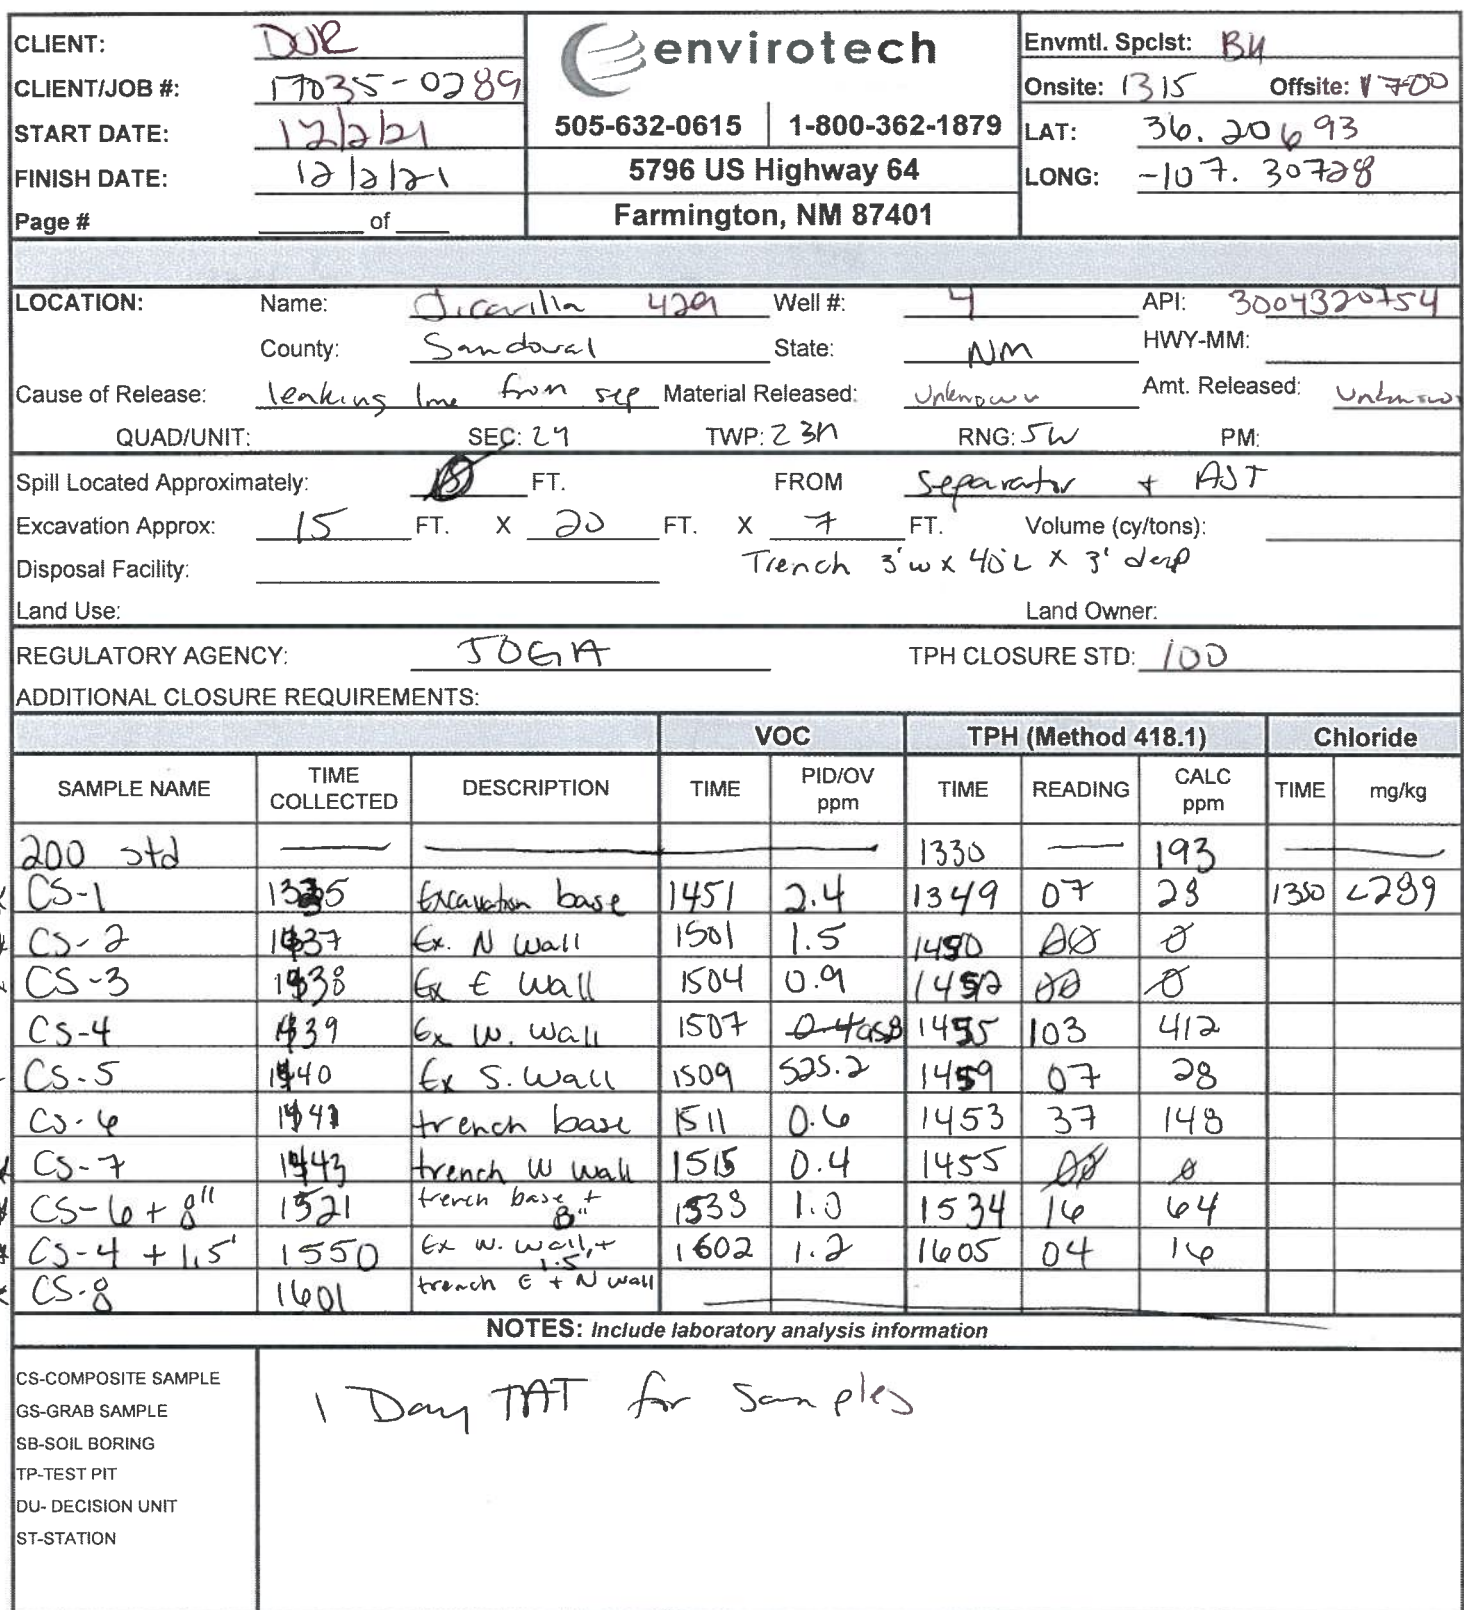 CLIENT: DJR
CLIENT/JOB #: 17035-0289
START DATE: 12/2/21
FINISH DATE: 12/2/21
Page # ____ of ____
envirotech
505-632-0615 1-800-362-1879
5796 US Highway 64
Farmington, NM 87401
Envmtl. Spclst: BH
Onsite: 1315 Offsite: 1700
LAT: 36.20693
LONG: -107.30728
LOCATION: Name: Jicarilla 429 Well #: 4 API: 3004320754
County: Sandoval State: NM HWY-MM:
Cause of Release: leaking line from sep Material Released: Unknown Amt. Released: Unknown
QUAD/UNIT: SEC: 29 TWP: 23N RNG: 5W PM:
Spill Located Approximately: FT. FROM Separator + AST
Excavation Approx: 15 FT. X 20 FT. X 7 FT. Volume (cy/tons):
Disposal Facility: Trench 3'w x 40'L x 3' deep
Land Use: Land Owner:
REGULATORY AGENCY: JOGA TPH CLOSURE STD: 100
ADDITIONAL CLOSURE REQUIREMENTS:
VOC TPH (Method 418.1) Chloride
SAMPLE NAME TIME COLLECTED DESCRIPTION TIME PID/OV ppm TIME READING CALC ppm TIME mg/kg
200 std — — 1330 — 193 —
CS-1 1335 Excavation base 1451 2.4 1349 07 28 1350 <289
CS-2 1437 Ex. N Wall 1501 1.5 1450 00 0
CS-3 1438 Ex E Wall 1504 0.9 1452 00 0
CS-4 1439 Ex W. Wall 1507 1455 103 412
CS-5 1440 Ex S. Wall 1509 525.2 1459 07 28
CS-6 1441 trench base 1511 0.6 1453 37 148
CS-7 1443 trench W Wall 1515 0.4 1455 00 0
CS-6 + 8" 1521 trench base + 8" 1533 1.0 1534 16 64
CS-4 + 1.5' 1550 Ex W. Wall, + 1.5' 1602 1.2 1605 04 16
CS-8 1601 trench E + N wall
NOTES: Include laboratory analysis information
CS-COMPOSITE SAMPLE
GS-GRAB SAMPLE
SB-SOIL BORING
TP-TEST PIT
DU- DECISION UNIT
ST-STATION
1 Day TAT for Samples